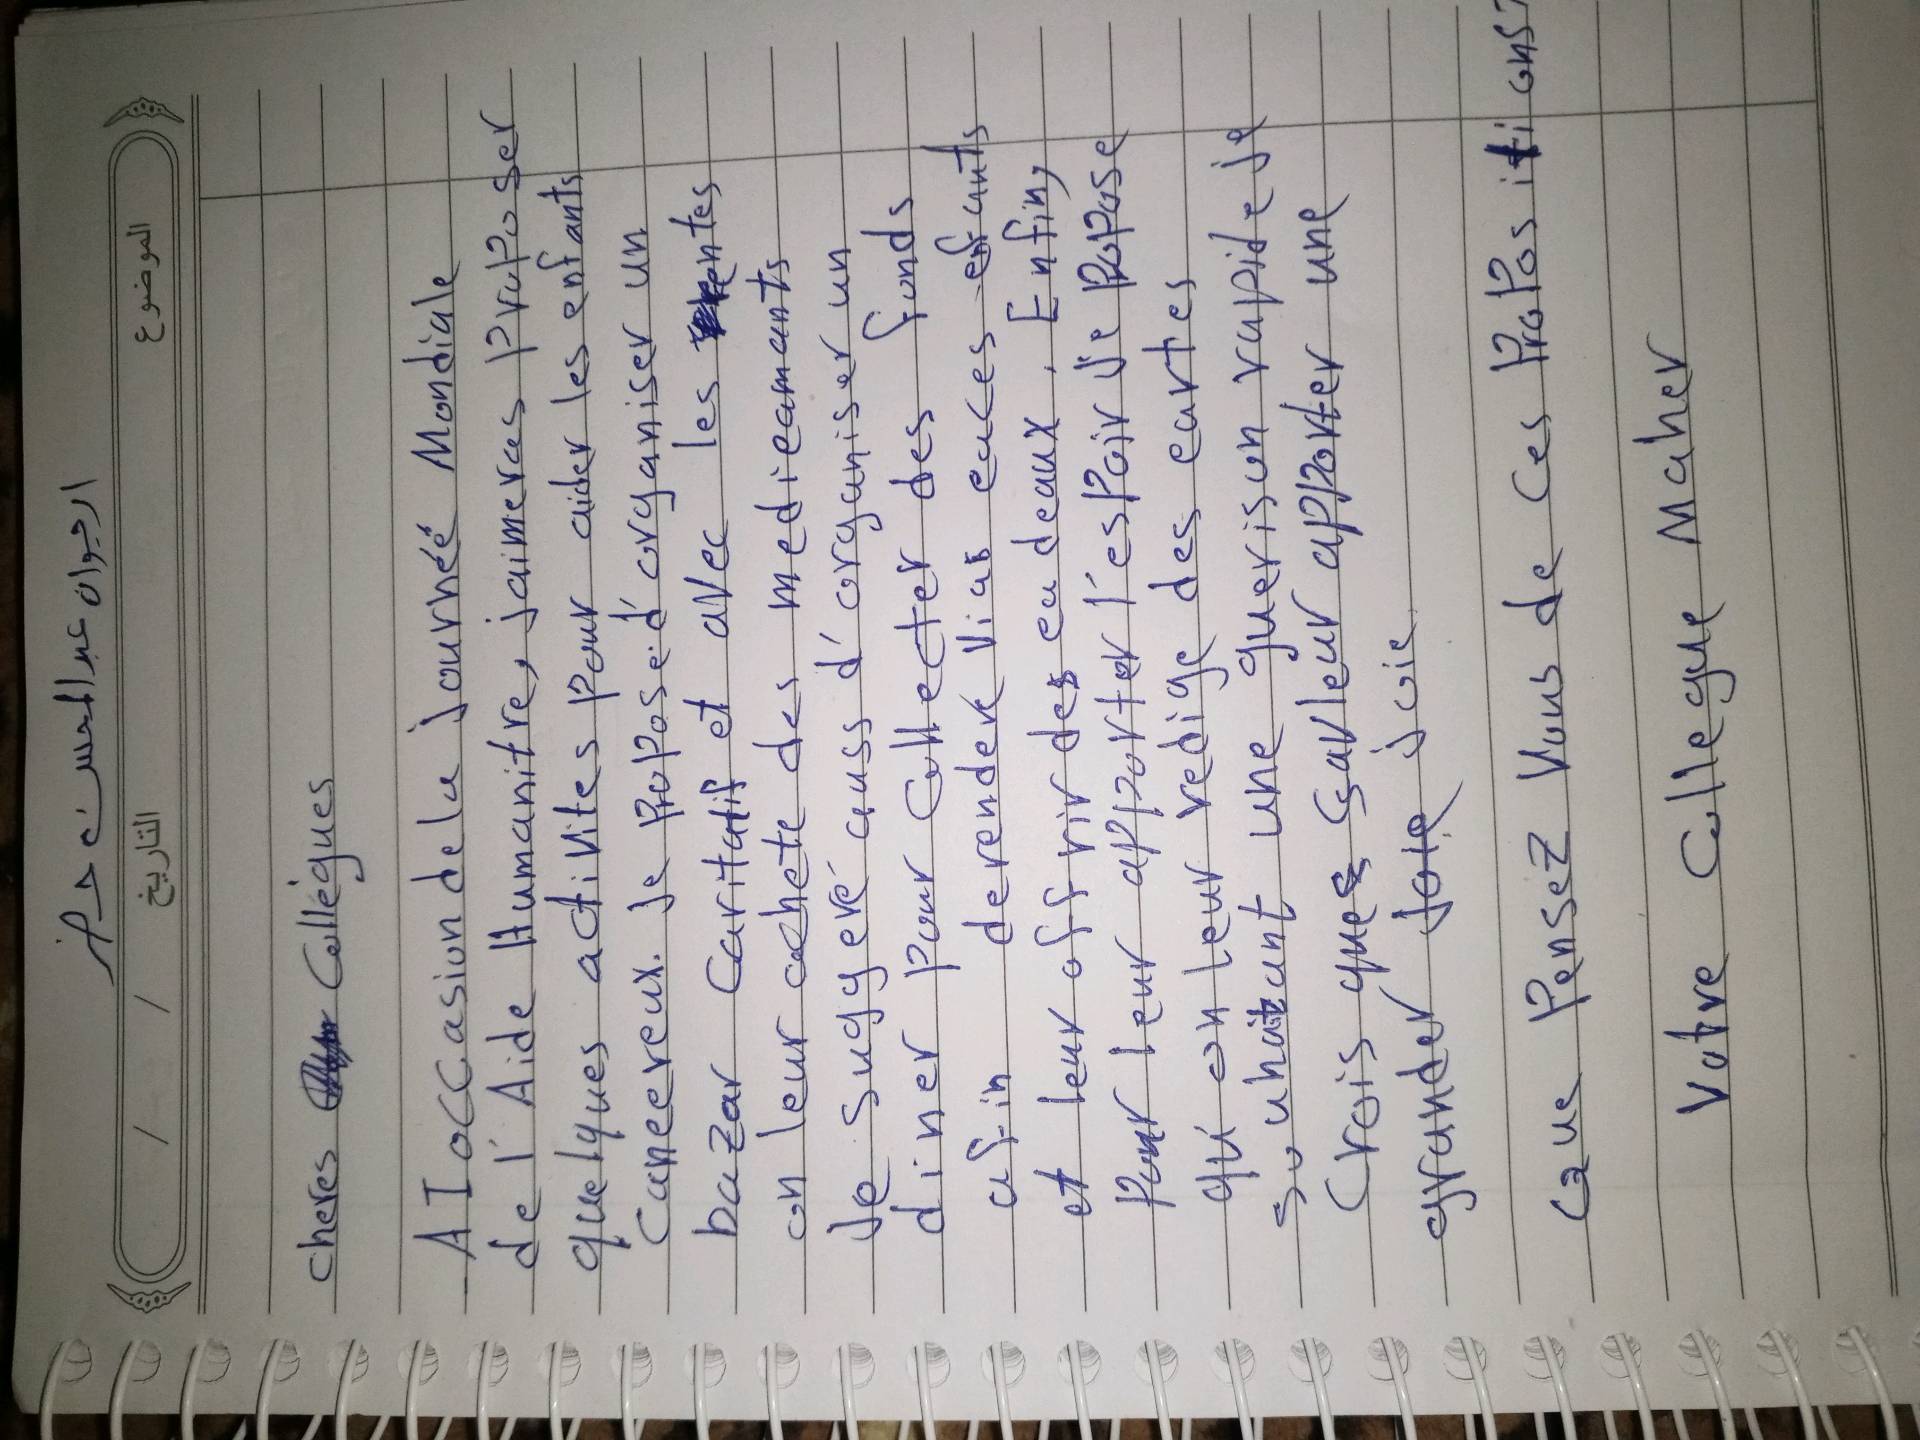 الموضوع
التاريخ / /
cheres Collègues
A I occasion de la journéé Mondiale
de l'Aide Humanitre, jaimeras proposer
quelques activites pour aider les enfants
Cancereux. Je propose d'organiser un
bazar Caritatif et avec les ventes
on leur achete des medicamants
Je suggeré auss d'organiser un
diner pour Collecter des fonds
afin derendere
et leur offrir des cadeaux. Enfin,
pour leur apporter l'espoir Je Popose
qu'on leur redige des cartes
souhaitant une guerison rapide je
Crois que apporter une
grander joie
que Pensez Vous de Ces Propositions?
Votre Collegue Maher